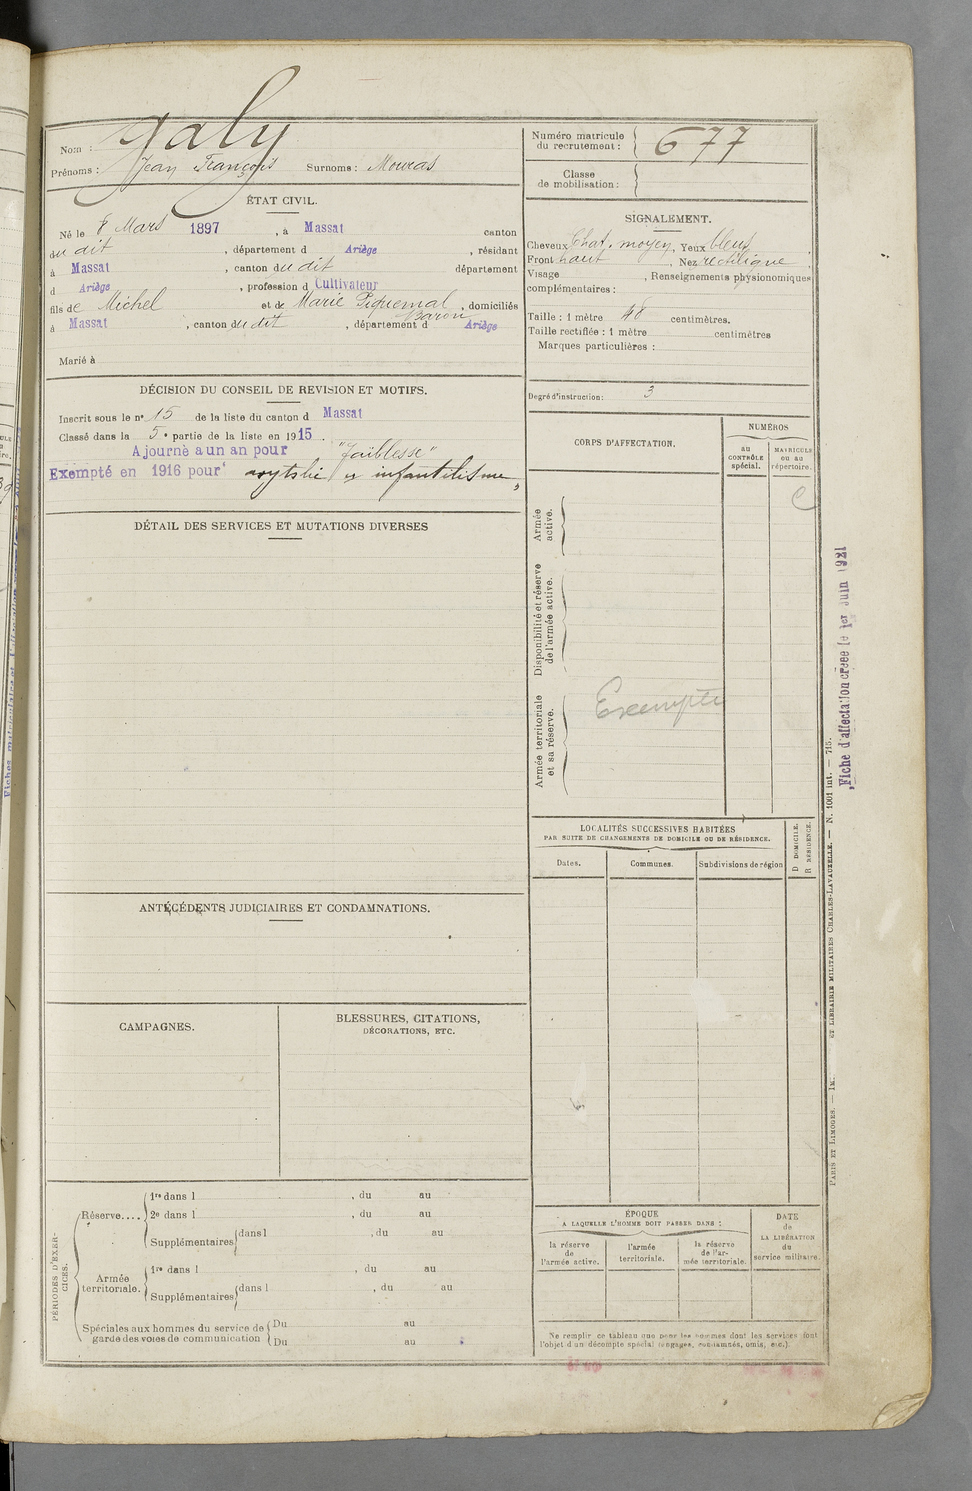 Nom : Galy
Prénoms : Jean François Surnoms : Mouras
ÉTAT CIVIL.
Né le 8 Mars 1897, à Massat canton
du dit, département d Ariège, résidant
à Massat, canton du dit département
d Ariège, profession d Cultivateur
fils de Michel et de Marie Piquemal Baron, domiciliés
à Massat, canton du dit, département d Ariège
Marié à
DÉCISION DU CONSEIL DE REVISION ET MOTIFS.
Inscrit sous le n° 15 de la liste du canton d Massat
Classé dans la 5e partie de la liste en 1915.
Ajourné a un an pour "faiblesse"
Exempté en 1916 pour infantilisme
DÉTAIL DES SERVICES ET MUTATIONS DIVERSES
ANTÉCÉDENTS JUDICIAIRES ET CONDAMNATIONS.
CAMPAGNES.
BLESSURES, CITATIONS,
DÉCORATIONS, ETC.
PÉRIODES D'EXER-
CICES.
Réserve.... 1re dans l , du au
2e dans l , du au
Supplémentaires dans l , du au
Armée
territoriale. 1re dans l , du au
Supplémentaires dans l , du au
Spéciales aux hommes du service de
garde des voies de communication
Du au
Du au
Numéro matricule
du recrutement : 677
Classe
de mobilisation :
SIGNALEMENT.
Cheveux chat. moyen, Yeux bleus
Front haut, Nez rectiligne
Visage , Renseignements physionomiques
complémentaires :
Taille : 1 mètre 48 centimètres.
Taille rectifiée : 1 mètre centimètres
Marques particulières :
Degré d'instruction : 3
CORPS D'AFFECTATION.
NUMÉROS
au
CONTRÔLE
spécial.
MATRICULE
ou au
répertoire.
C
Armée
active.
Disponibilité et réserve
de l'armée active.
Armée territoriale
et sa réserve.
Exempté
LOCALITÉS SUCCESSIVES HABITÉES
PAR SUITE DE CHANGEMENTS DE DOMICILE OU DE RÉSIDENCE.
Dates.
Communes.
Subdivisions de région
D DOMICILE.
R RÉSIDENCE.
ÉPOQUE
A LAQUELLE L'HOMME DOIT PASSER DANS :
la réserve
de
l'armée active.
l'armée
territoriale.
la réserve
de l'ar-
mée territoriale.
DATE
de
LA LIBÉRATION
du
service militaire.
Ne remplir ce tableau que pour les hommes dont les services font
l'objet d'un décompte spécial (engagés, condamnés, omis, etc.).
Fiche d'affectation créée le 1er Juin 1921
PARIS ET LIMOGES. — IM. ET LIBRAIRIE MILITAIRES CHARLES-LAVAUZELLE. — N. 1001 int. — 715.